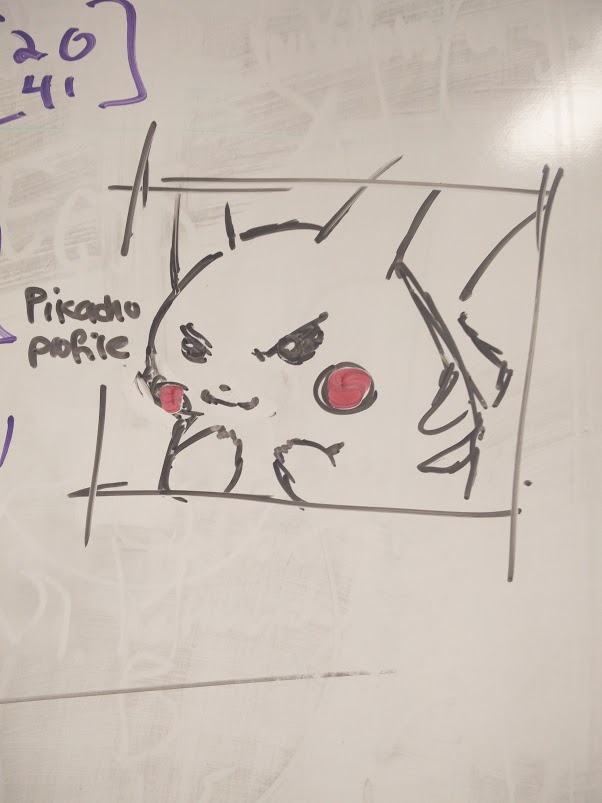 20
41
Pikacho
profile